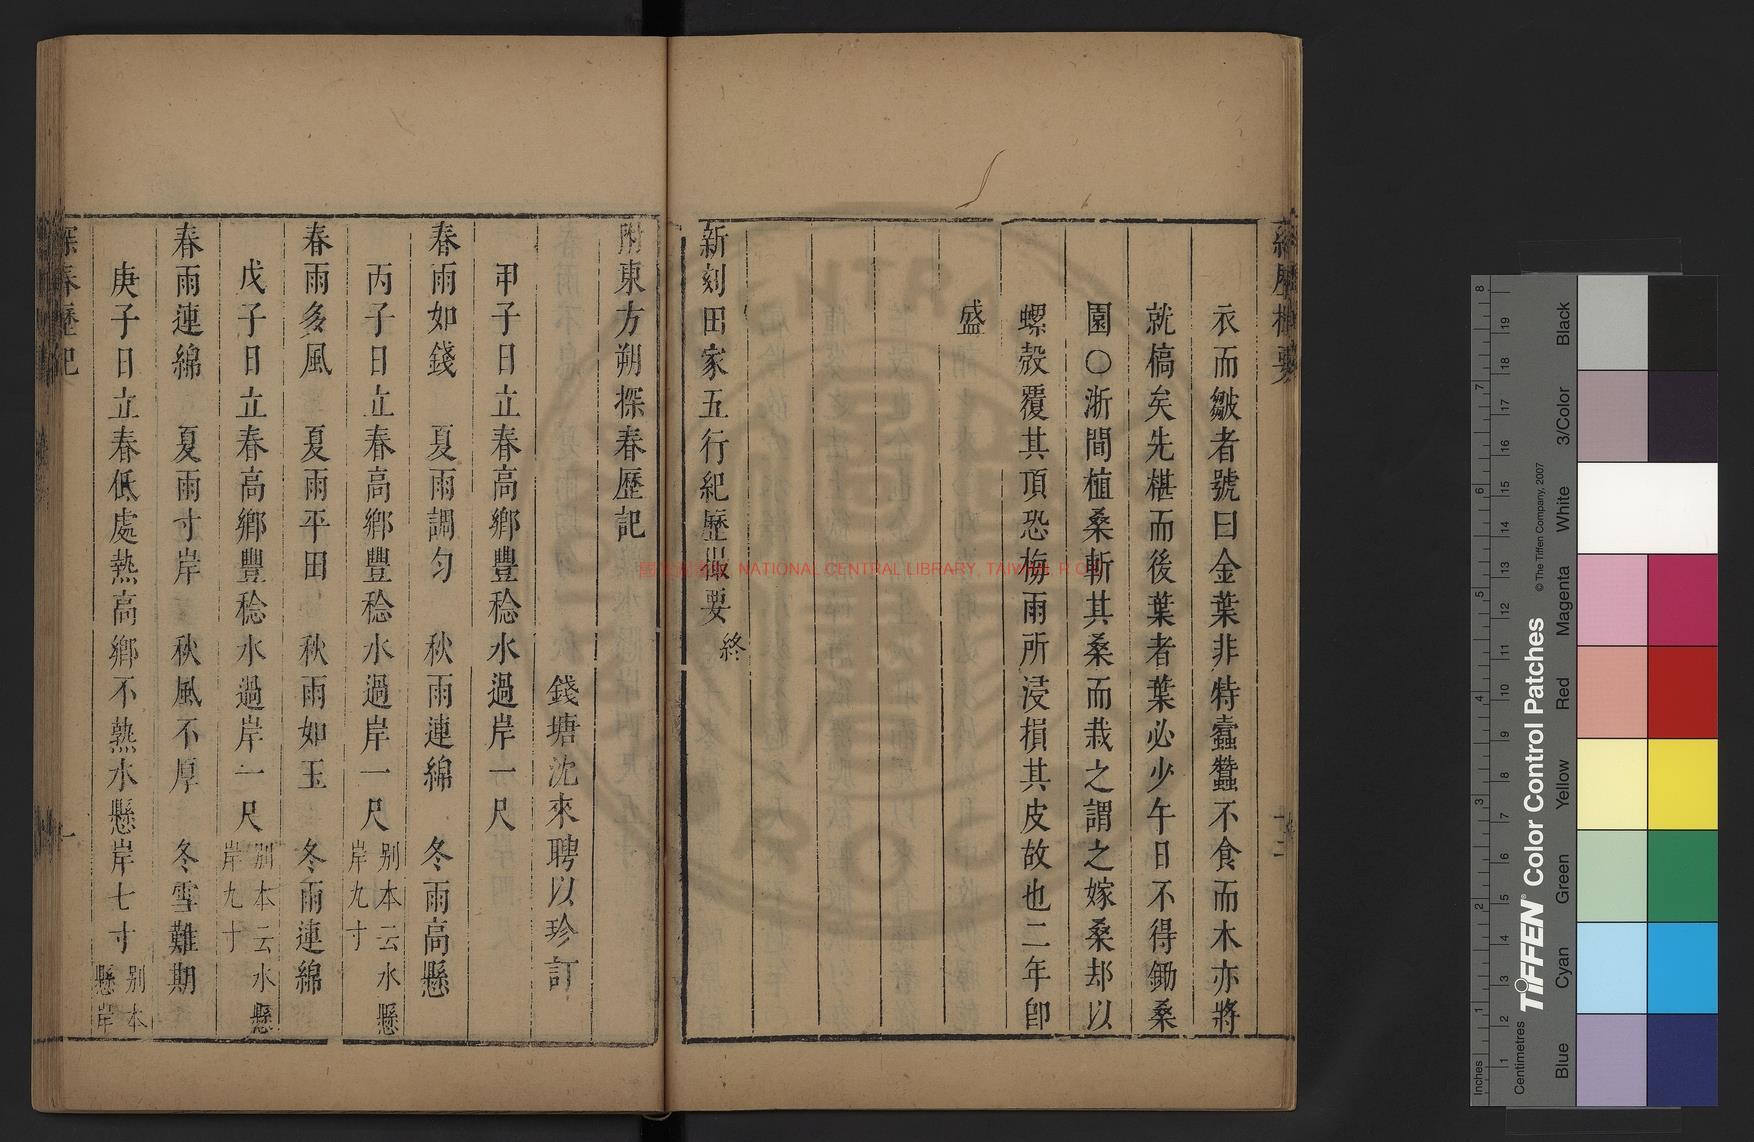 衣而皺者號曰金葉非特蠹蠶不食而木亦將
就槁矣先椹而後葉者葉必少午日不得鋤桑
園○浙間植桑斬其桑而栽之謂之嫁桑却以
螺殼覆其頂恐梅雨所浸損其皮故也二年卽
盛
新刻田家五行紀歷撮要終
附東方朔探春歷記
錢塘沈來聘以珍訂
甲子日立春高鄉豐稔水過岸一尺
春雨如錢 夏雨調勻 秋雨連綿 冬雨高懸
丙子日立春高鄉豐稔水過岸一尺别本云水懸岸九寸
春雨多風 夏雨平田 秋雨如玉 冬雨連綿
戊子日立春高鄉豐稔水過岸一尺别本云水懸岸九寸
春雨連綿 夏雨寸岸 秋風不厚 冬雪難期
庚子日立春低處熱高鄉不熟水懸岸七寸别本懸岸
探春歷記
一
NATIONAL CENTRAL LIBRARY, TAIWAN, R.O.C
TIFFEN Color Control Patches
© The Tiffen Company, 2007
Inches
Centimetres
Blue
Cyan
Green
Yellow
Red
Magenta
White
3/Color
Black